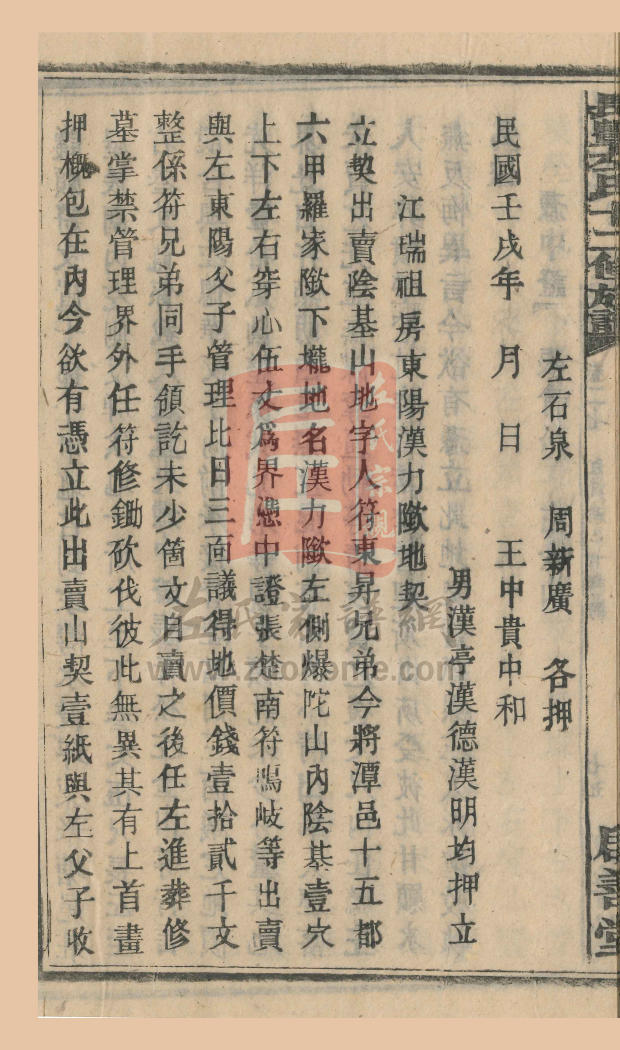 左石泉　周新廣　各押
民國壬戌年　月　日　王中貴中和
男漢亭漢德漢明均押立
江瑞祖房東陽漢力墽地契
立契出賣陰基山地字人符東昇兄弟今將潭邑十五都
六甲羅家墽下壠地名漢力墽左側爆陀山內陰基壹穴
上下左右穿心伍丈爲界憑中證張楚南符鳴岐等出賣
與左東陽父子管理比日三面議得地價錢壹拾貳千文
整係符兄弟同手領訖未少箇文自賣之後任左進葬修
墓掌禁管理界外任符修鋤砍伐彼此無異其有上首畫
押概包在內今欲有憑立此出賣山契壹紙與左父子收
左氏宗親
左氏家譜網
www.zuojiome.com